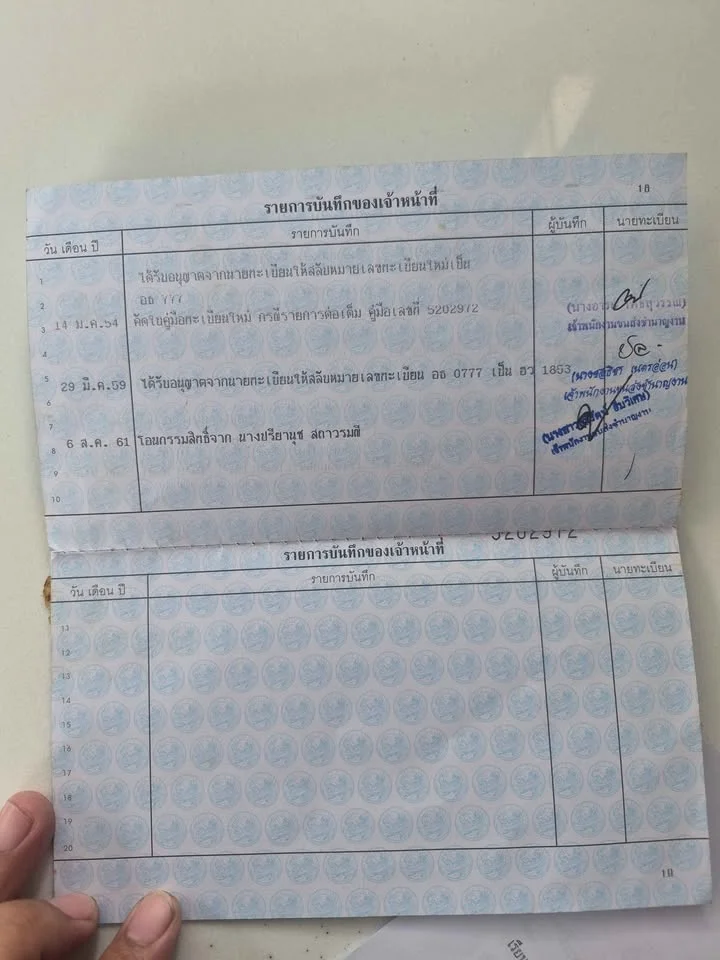 18
รายการบันทึกของเจ้าหน้าที่
วัน เดือน ปี
รายการบันทึก
ผู้บันทึก
นายทะเบียน
1 ได้รับอนุญาตจากนายทะเบียนให้สลับหมายเลขทะเบียนใหม่เป็น
2 อธ 777
3 14 ม.ค.54 คัดใบคู่มือทะเบียนใหม่ กรณีรายการต่อเต็ม คู่มือเลขที่ 5202972
เจ้าพนักงานขนส่งชำนาญงาน
4
5
6 29 มี.ค.59 ได้รับอนุญาตจากนายทะเบียนให้สลับหมายเลขทะเบียน อธ 0777 เป็น ฮว 1853
เจ้าพนักงานขนส่งชำนาญงาน
7
8 6 ส.ค. 61 โอนกรรมสิทธิ์จาก นางปรียานุช สถาวรมณี
เจ้าพนักงานขนส่งชำนาญงาน
9
10
5202972
รายการบันทึกของเจ้าหน้าที่
วัน เดือน ปี
รายการบันทึก
ผู้บันทึก
นายทะเบียน
11
12
13
14
15
16
17
18
19
20
19